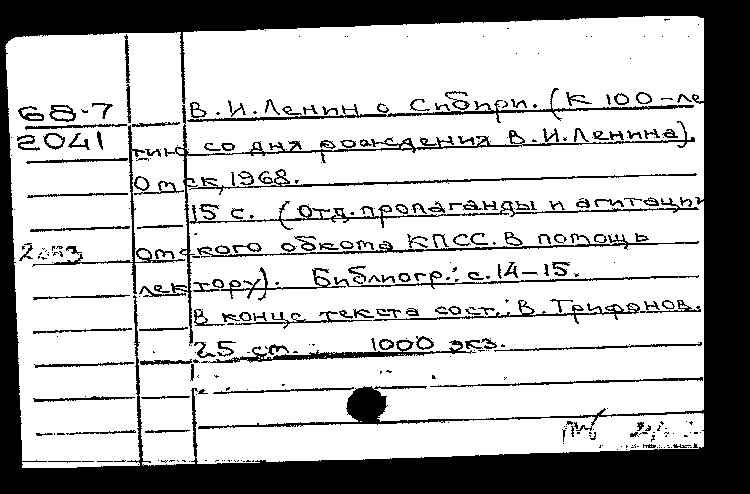 68-7 В.И.Ленин о Сибири. (К 100-ле
2041 тию со дня рождения В.И.Ленина).
Омск, 1968.
15 с. (Отд. пропаганды и агитации
омского обкома КПСС. В помощь
лектору). Библиогр.: с.14-15.
В конце текста сост.: В. Трифонов.
25 см. 1000 экз.